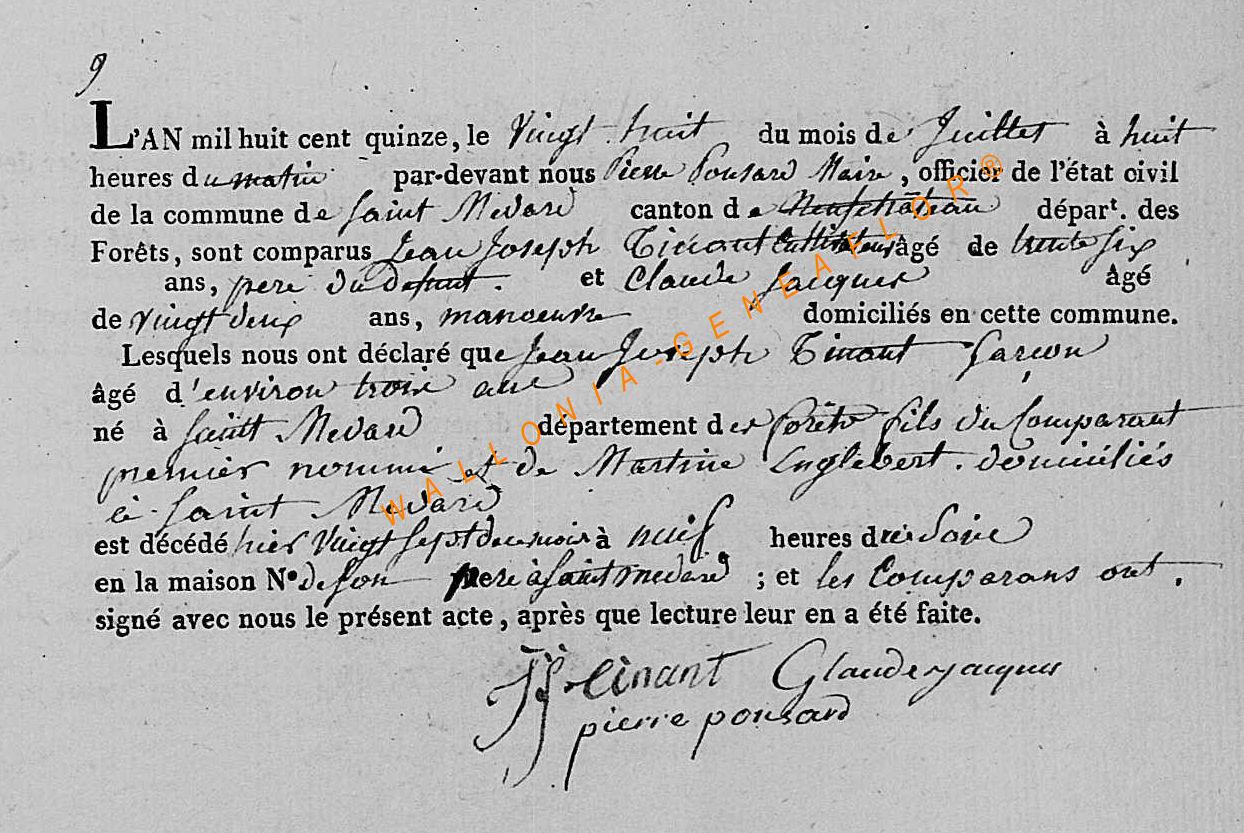 9
L'AN mil huit cent quinze, le Vingt huit du mois de Juillet à huit
heures du matin par-devant nous Pierre Ponsard Maire, officier de l'état civil
de la commune de Saint Medard canton de Neufchateau dépar^t. des
Forêts, sont comparus Jean Joseph Tinant Cultivateur âgé de trente six
ans, pere du defunt. et Claude Jacques âgé
de vingt deux ans, manoeuvre domiciliés en cette commune.
Lesquels nous ont déclaré que Jean Joseph Tinant Garçon
âgé d'environ trois ans
né à Saint Medard département des forêts fils du Comparant
premier nommé et de Martine Englebert. domiciliés
à Saint Medard
est décédé hier Vingt Sept du mois à neuf heures du Soir
en la maison N° de son pere à Saint medard ; et les Comparans ont.
signé avec nous le présent acte, après que lecture leur en a été faite.
JJ tinant Glaude jacques
pierre ponsard
WALLONIA-GENEAFLOR®